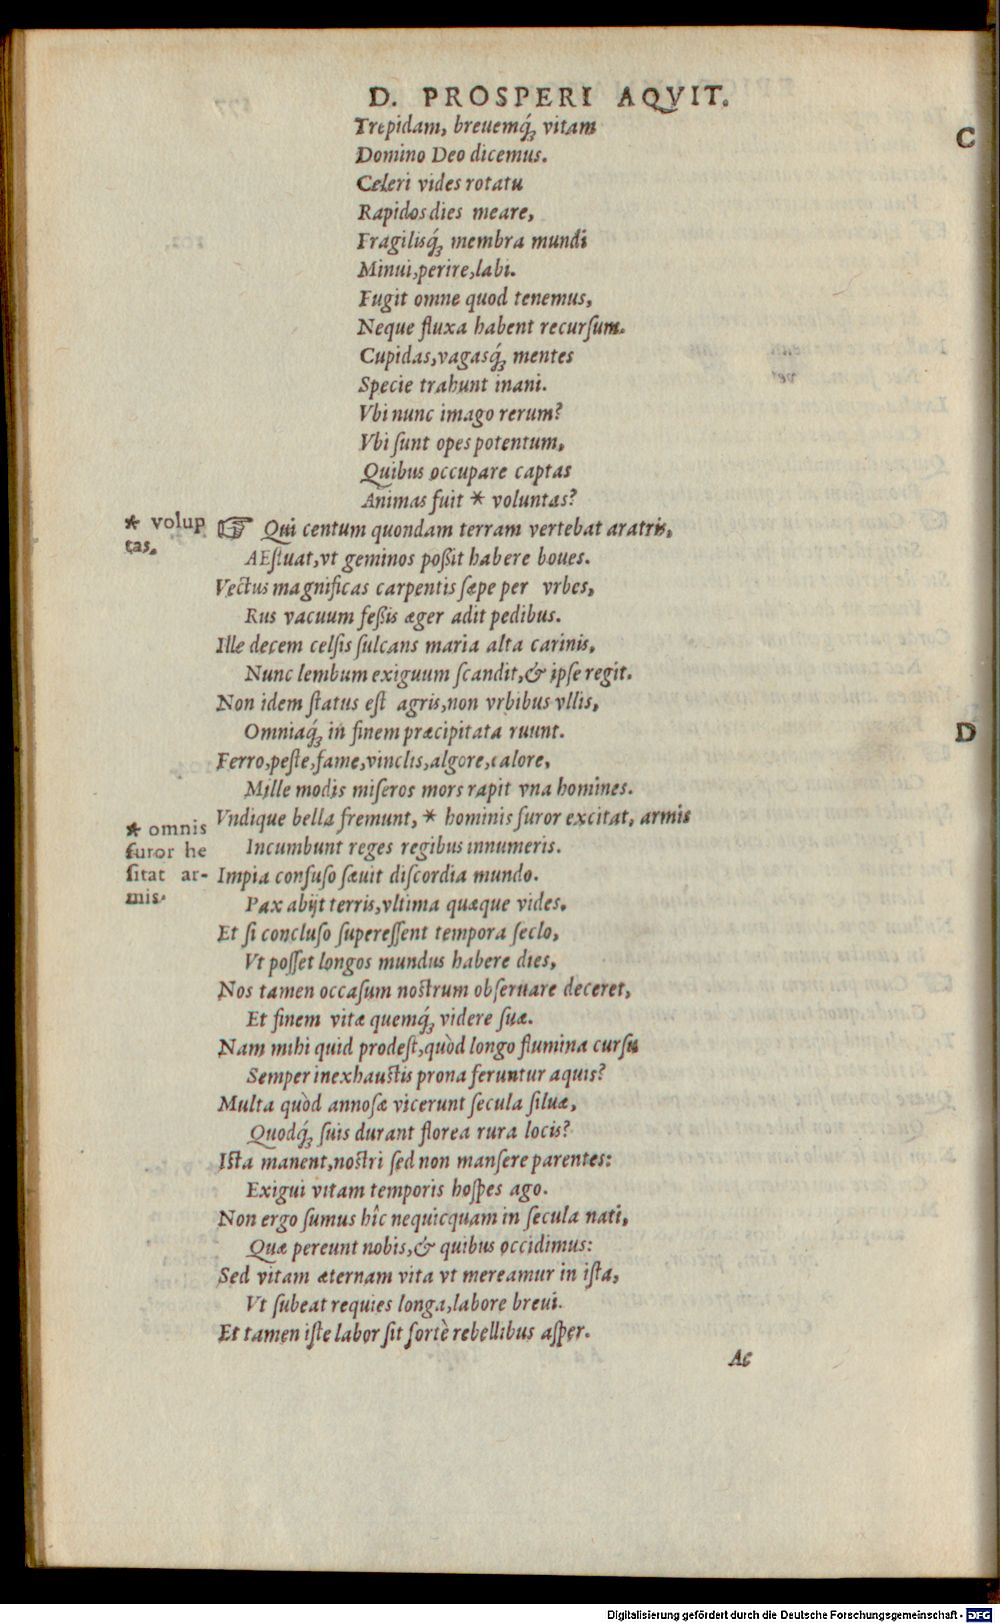 D. PROSPERI AQVIT.
Trepidam, breuemq́; vitam
C
Domino Deo dicemus.
Celeri vides rotatu
Rapidos dies meare,
Fragilisq́; membra mundi
Minui, perire, labi.
Fugit omne quod tenemus,
Neque fluxa habent recurſum.
Cupidas, vagasq́; mentes
Specie trahunt inani.
Vbi nunc imago rerum?
Vbi ſunt opes potentum,
Quibus occupare captas
Animas fuit * voluntas?
* volup
tas.
☞ Qui centum quondam terram vertebat aratris,
AEſtuat, vt geminos poßit habere boues.
Vectus magnificas carpentis ſæpe per vrbes,
Rus vacuum feßis æger adit pedibus.
Ille decem celſis ſulcans maria alta carinis,
Nunc lembum exiguum ſcandit, & ipſe regit.
Non idem ſtatus eſt agris, non vrbibus vllis,
Omniaq́; in finem præcipitata ruunt.
D
Ferro, peſte, fame, vinclis, algore, calore,
Mille modis miſeros mors rapit vna homines.
Vndique bella fremunt, * hominis furor excitat, armis
* omnis
furor he
ſitat ar-
mis.
Incumbunt reges regibus innumeris.
Impia confuſo ſæuit diſcordia mundo.
Pax abijt terris, vltima quæque vides.
Et ſi concluſo ſupereſſent tempora ſeclo,
Vt poſſet longos mundus habere dies,
Nos tamen occaſum noſtrum obſeruare deceret,
Et finem vitæ quemq́; videre ſuæ.
Nam mihi quid prodeſt, quòd longo flumina curſu
Semper inexhauſtis prona feruntur aquis?
Multa quòd annoſæ vicerunt ſecula ſiluæ,
Quodq́; ſuis durant florea rura locis?
Iſta manent, noſtri ſed non manſere parentes:
Exigui vitam temporis hoſpes ago.
Non ergo ſumus hîc nequicquam in ſecula nati,
Quæ pereunt nobis, & quibus occidimus:
Sed vitam æternam vita vt mereamur in iſta,
Vt ſubeat requies longa, labore breui.
Et tamen iſte labor ſit fortè rebellibus aſper.
Ac
Digitalisierung gefördert durch die Deutsche Forschungsgemeinschaft - DFG